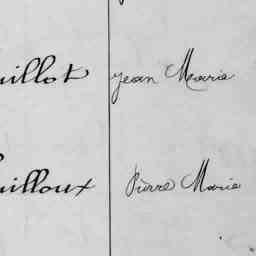 uillot Jean Marie
uilloux Pierre Marie